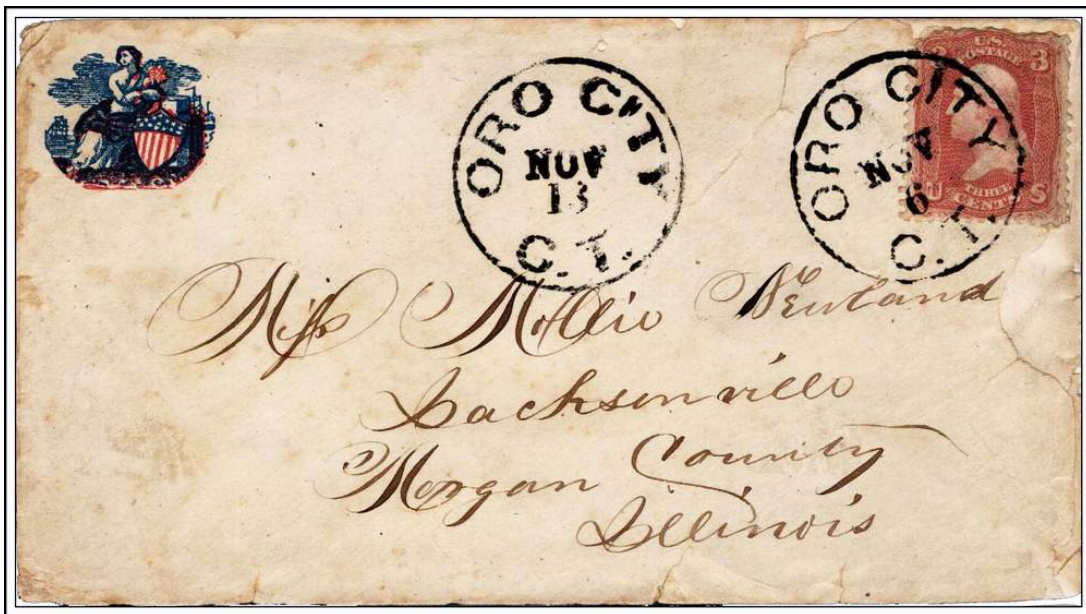 ORO CITY
NOV
13
C. T.
ORO CITY
NOV
6
C. T.
U.S. POSTAGE
3 3
U S
THREE
CENTS
Miss Mollie Newland
Jacksonville
Morgan County
Illinois